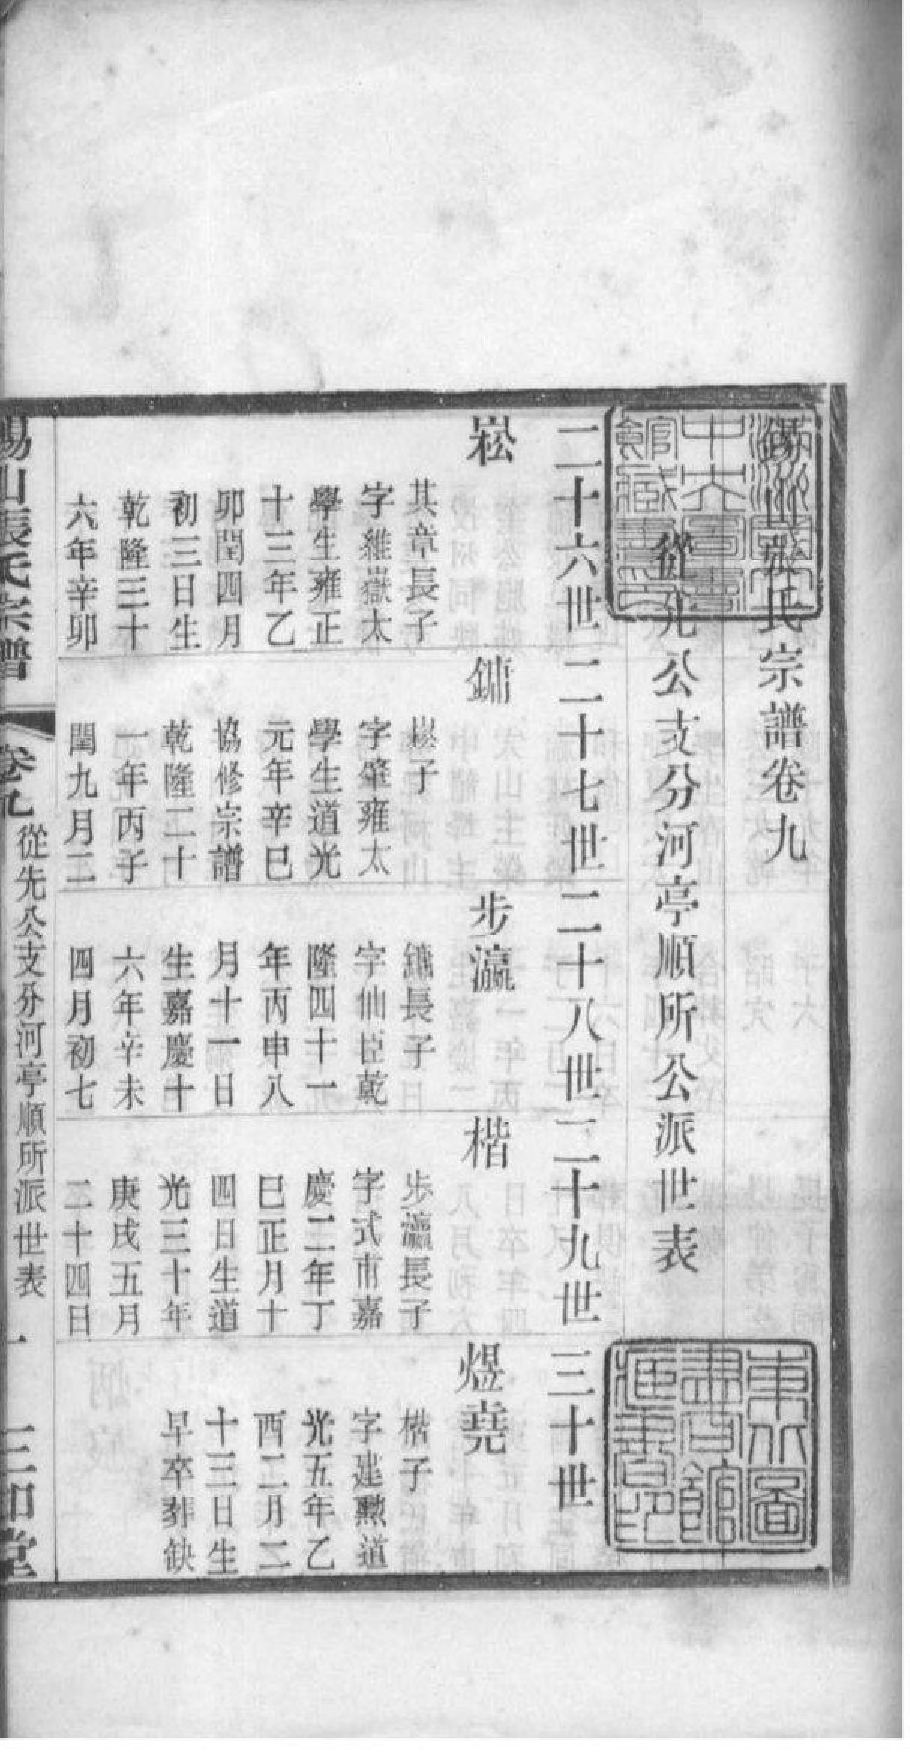 錫山張氏宗譜卷九
從先公支分河亭順所公派世表
二十六世
二十七世
二十八世
二十九世
三十世
崧
其章長子
字維嶽太
學生雍正
十三年乙
卯閏四月
初三日生
乾隆三十
六年辛卯
鏞
崧子
字肇雍太
學生道光
元年辛巳
協修宗譜
乾隆二十
一年丙子
閏九月二
步瀛
鏞長子
字仙臣乾
隆四十一
年丙申八
月十一日
生嘉慶十
六年辛未
四月初七
楷
步瀛長子
字式市嘉
慶二年丁
巳正月十
四日生道
光三十年
庚戌五月
二十四日
煜堯
楷子
字建勲道
光五年乙
酉二月二
十三日生
早卒葬缺
錫山張氏宗譜
卷九
從先公支分河亭順所派世表
一
三和堂
滿洲國立中央圖書館籌備處藏書之印
東北圖書館所藏善本